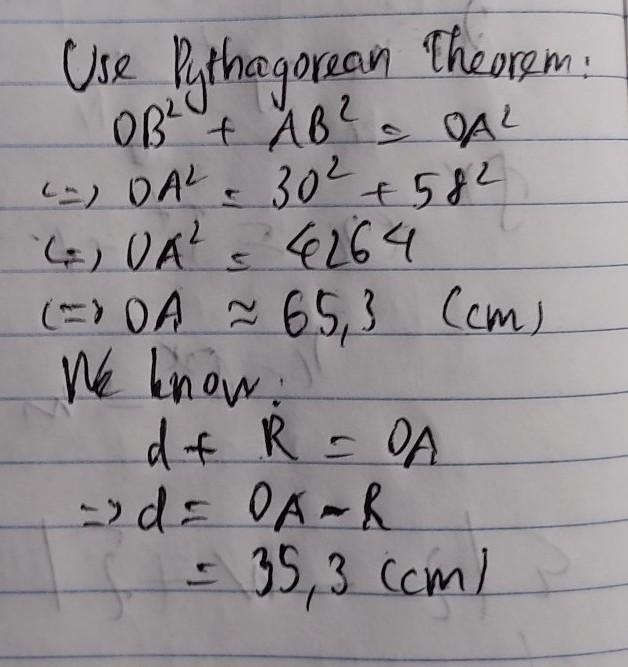 Use Pythagorean Theorem:
OB² + AB² = OA²
<=> OA² = 30² + 58²
<=> OA² = 4264
<=> OA ≈ 65,3 (cm)
We know:
d + R = OA
=> d = OA - R
= 35,3 (cm)